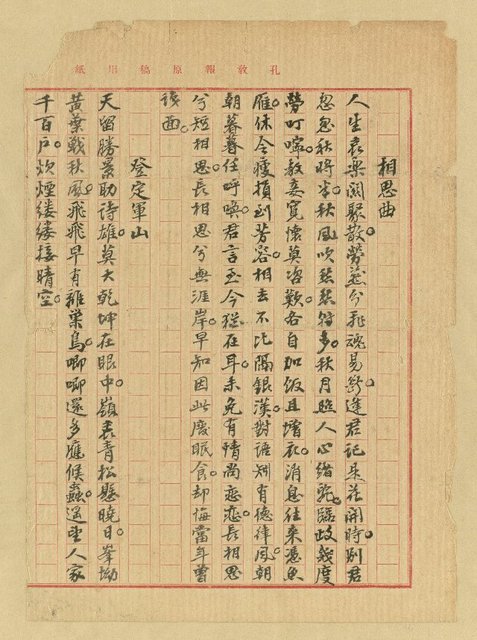 孔教報原稿用紙
相思曲
人生哀樂関聚散。勞燕分飛魂易斷。逢君記是花開時。別君
忽忽秋將半。秋風吹愁愁多。秋月照人心緒亂。臨歧幾度
勞叮嚀。教妾寬懷莫咨歎。各自加飯且增衣。消息往來憑魚
雁。休令瘦損到芳容。相去不比隔銀漢。對語別有德律風。朝
朝暮暮任呼喚。君言至今猶在耳。未免有情尚戀戀。長相思
兮短相思。長相思兮無涯岸。早知因此廢眠食。却悔當年曾
識面。
登定軍山
天留勝景助詩雄。莫大乾坤在眼中。嶺表青松懸曉日。峯坳
黃葉戰秋風。飛飛早有離巢鳥。唧唧還多應候蟲。遥望人家
千百戶。炊煙縷縷接晴空。